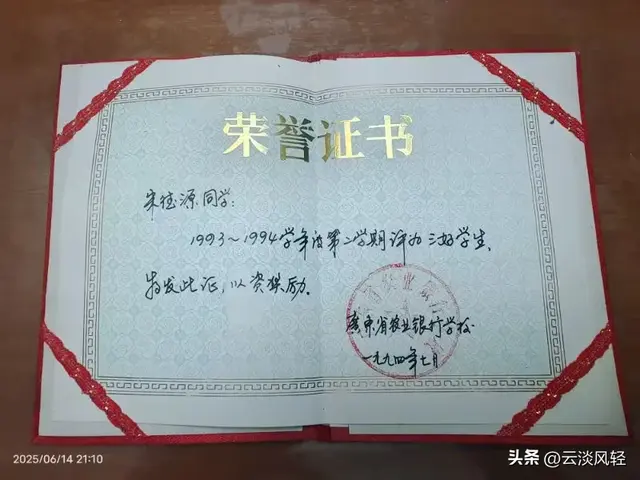 荣誉证书
宋德源同学:
1993~1994学年度第二学期评为三好学生,
特发此证,以资奖励。
广东省农业银行学校
一九九四年七月
2025/06/14 21:10
头条 @云淡风轻